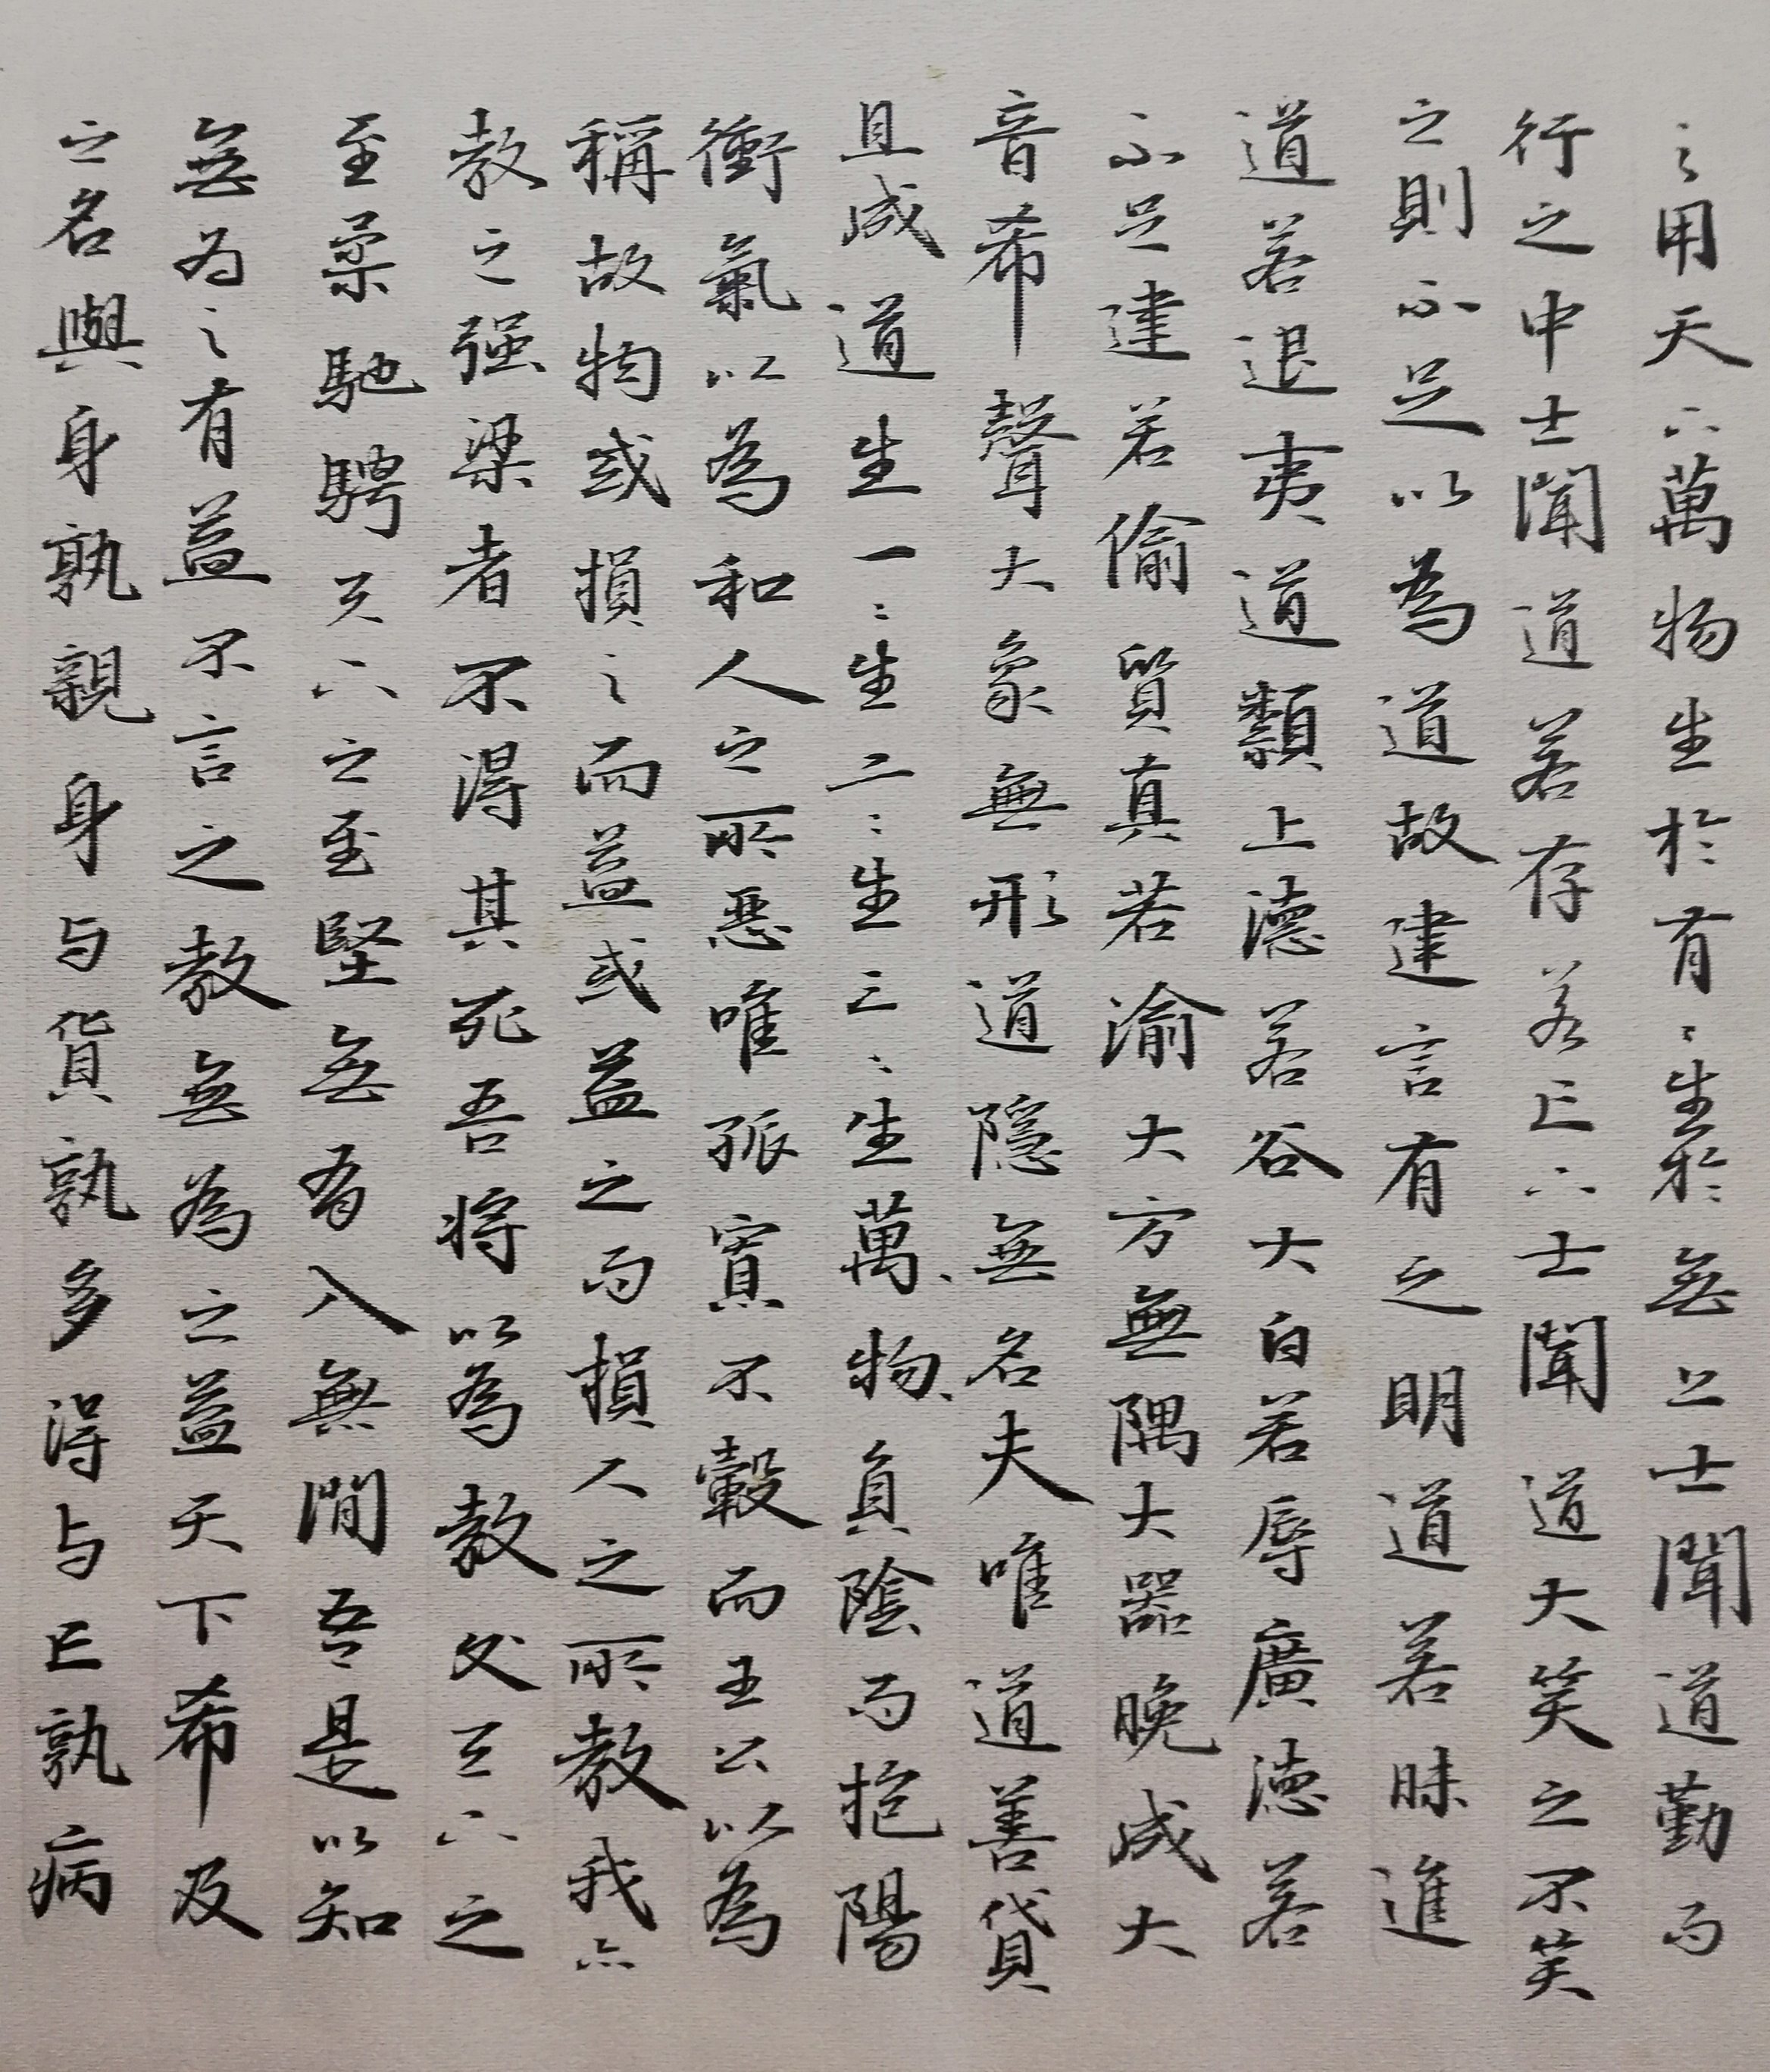 之用天下萬物生於有〻生於無上士聞道勤而
行之中士聞道若存若亡下士聞道大笑之不笑
之則不足以為道故建言有之明道若昧進
道若退夷道類上德若谷大白若辱廣德若
不足建若偷質真若渝大方無隅大器晚成大
音希聲大象無形道隱無名夫唯道善貸
且成道生一〻生二〻生三〻生萬物負陰而抱陽
衝氣以為和人之所惡唯孤寡不轂而王公以為
稱故物或損之而益或益之而損人之所教我亦
教之强梁者不得其死吾將以為教父天下之
至柔馳騁天下之至堅無有入無間吾是以知
無為之有益不言之教無為之益天下希及
之名與身孰親身与貨孰多得与亡孰病